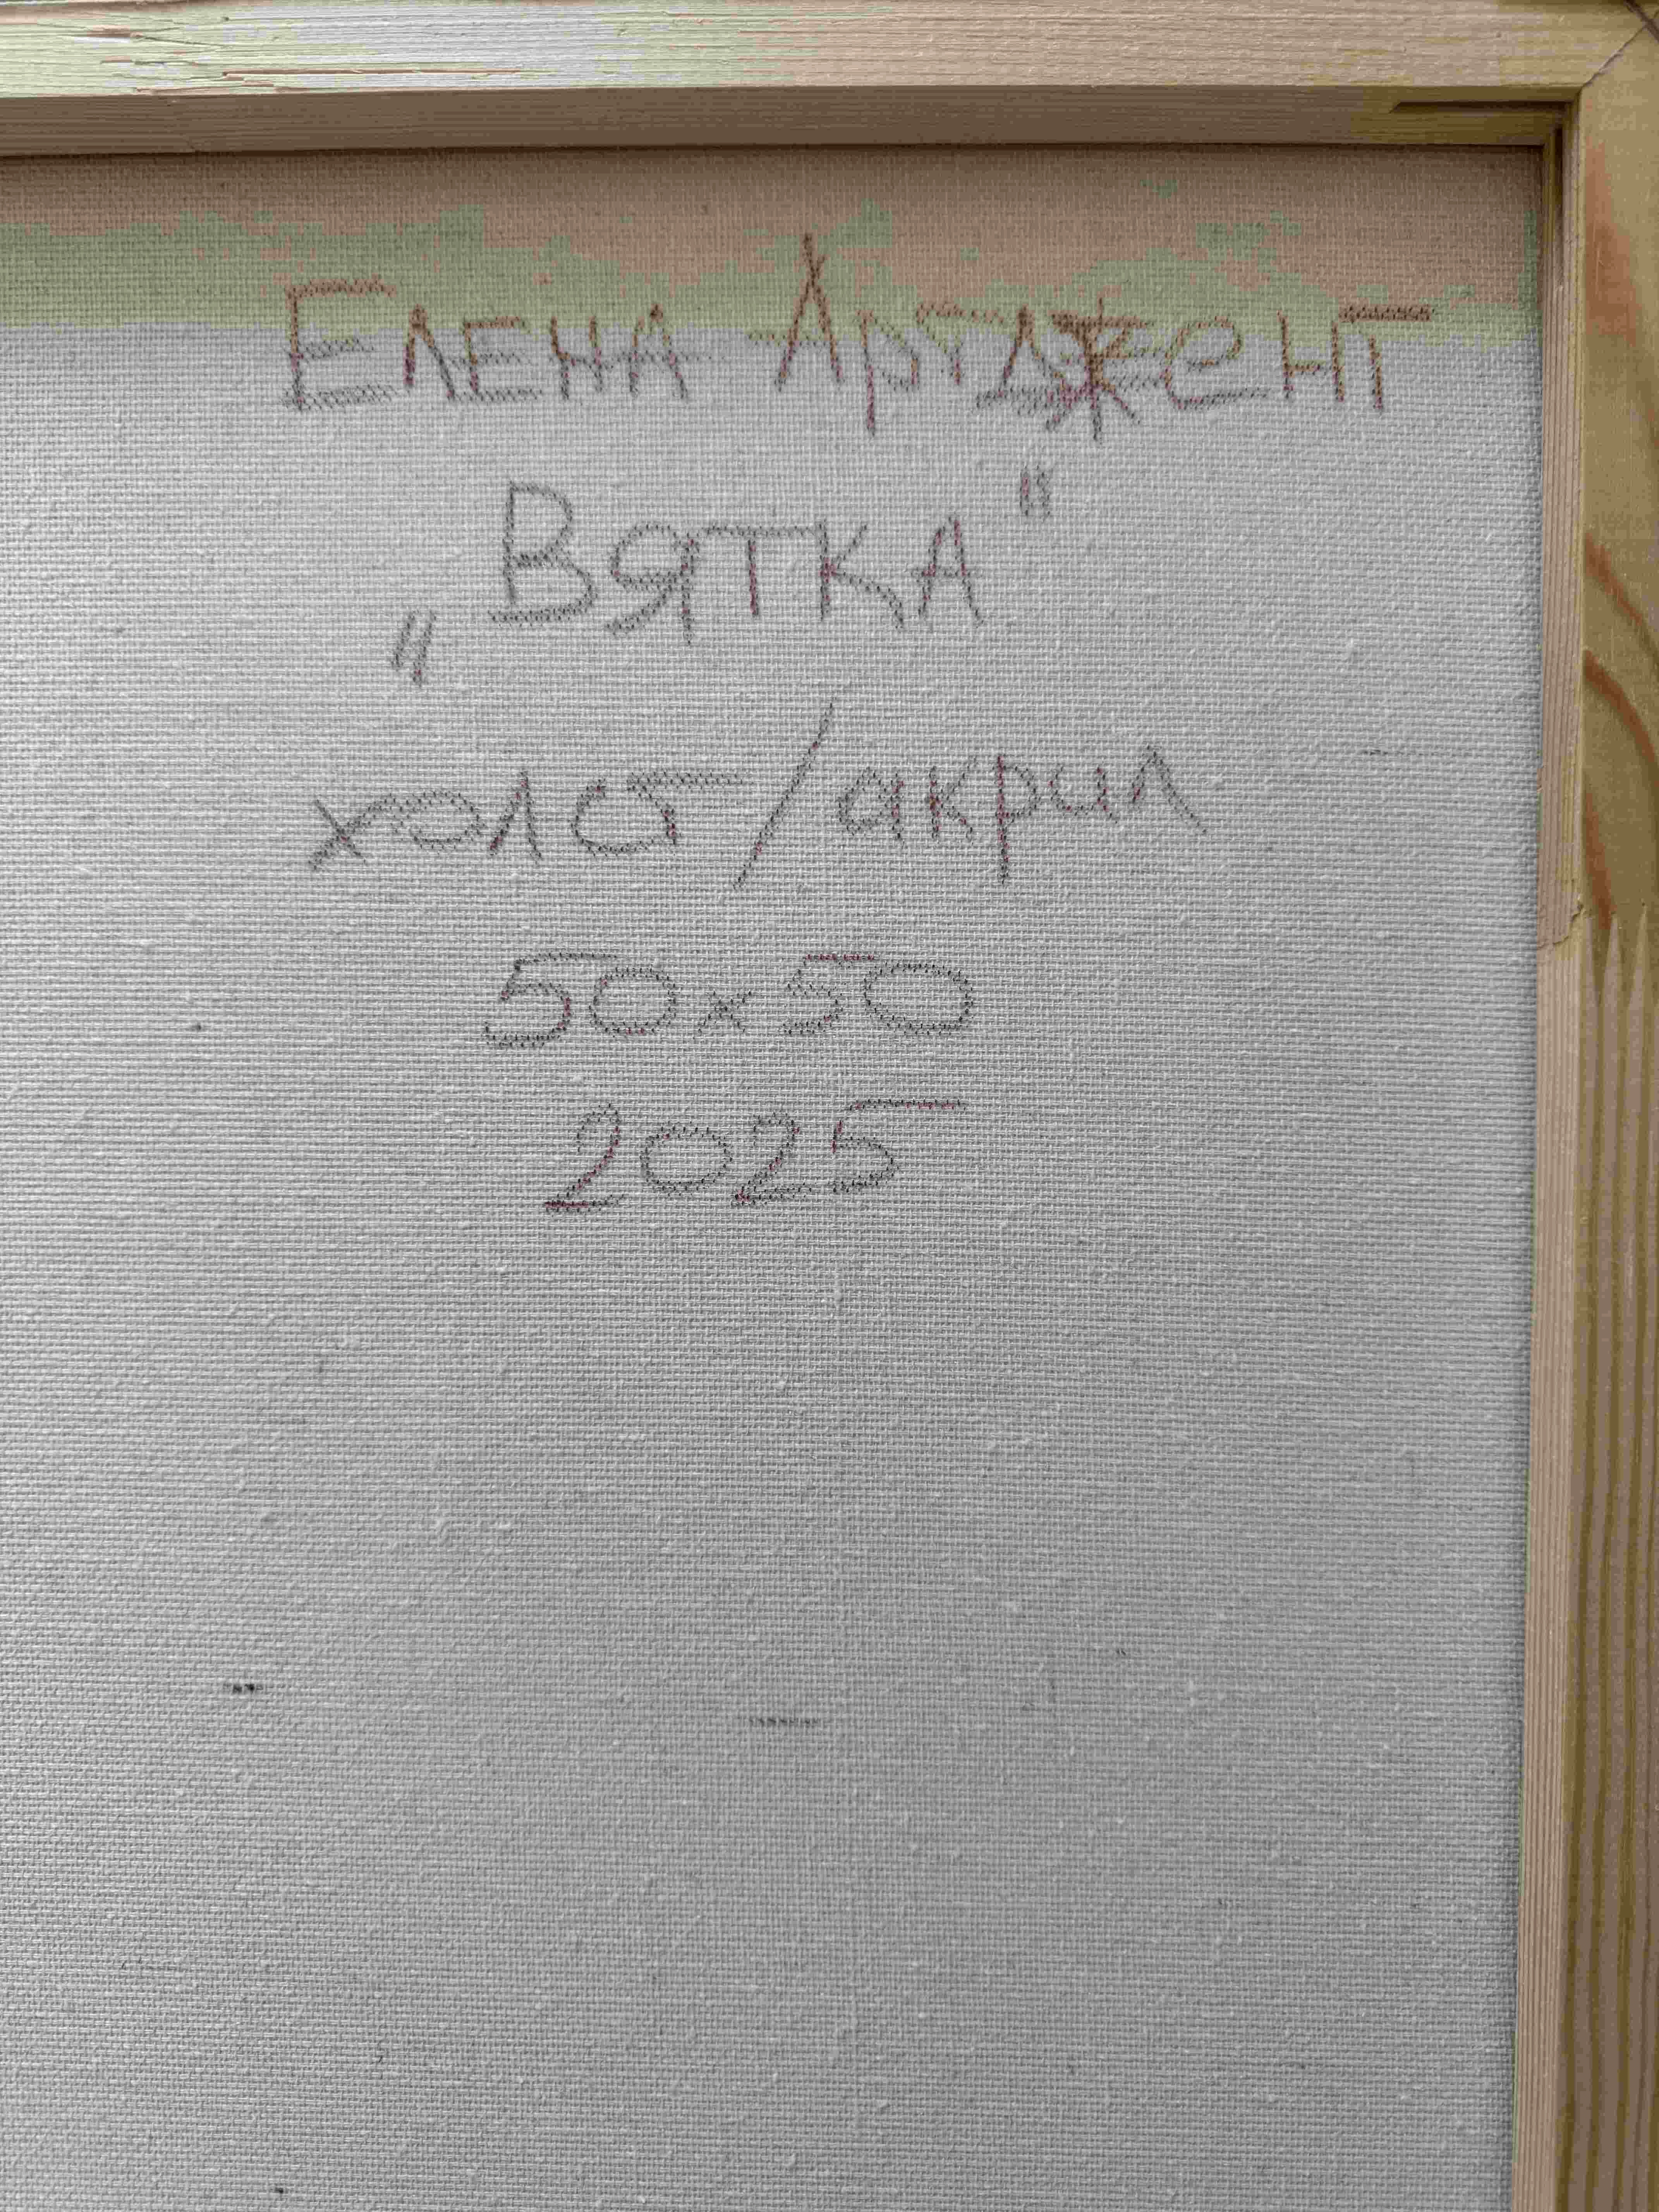 Елена Артджент
„Вятка"
холст/акрил
50х50
2025